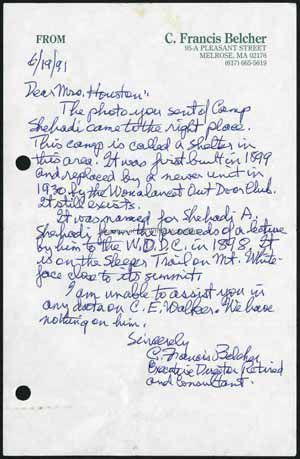 FROM
C. Francis Belcher
95-A PLEASANT STREET
MELROSE, MA 02176
(617) 665-5619
6/19/91
Dear Mrs. Houston:
The photo you sent of Camp
Shehadi came to the right place.
This camp is called a shelter in
this area. It was first built in 1899
and replaced by a newer unit in
1930 by the Wonalancet Out Door Club.
It still exists.
It was named for Shehadi A.
Shehadi from the proceeds of a lecture
by him to the W.O.D.C. in 1898. It
is on the Sleeper Trail on Mt. White-
face close to its summit.
I am unable to assist you in
any data on C. E. Walker. We have
nothing on him.
Sincerely
C. Francis Belcher
Executive Director Retired
and Consultant.